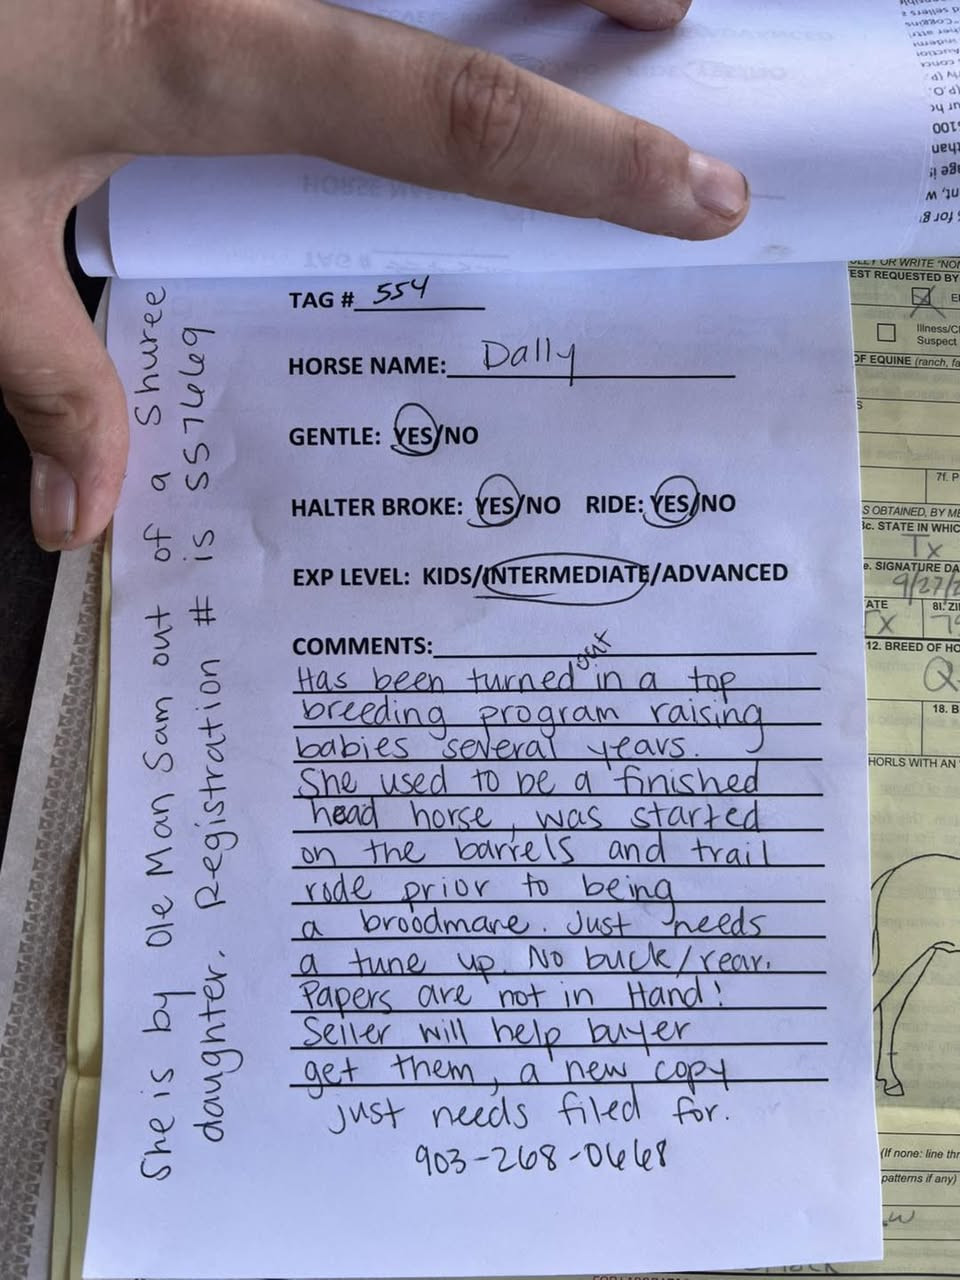 TAG # 554
HORSE NAME: Dally
GENTLE: YES/NO
HALTER BROKE: YES/NO RIDE: YES/NO
EXP LEVEL: KIDS/INTERMEDIATE/ADVANCED
COMMENTS:
Has been turned out in a top
breeding program raising
babies several years.
She used to be a finished
head horse, was started
on the barrels and trail
rode prior to being
a broodmare. Just needs
a tune up. No buck/rear.
Papers are not in Hand!
Seller will help buyer
get them, a new copy
just needs filed for.
903-268-0668
She is by Ole Man Sam out of a Shuree
daughter. Registration # is 5574669
EST REQUESTED BY
Illness/C
Suspect
OF EQUINE (ranch, fa
7f. P
S OBTAINED, BY ME
c. STATE IN WHIC
Tx
e. SIGNATURE DA
9/27/2
ATE
8l. ZI
TX
12. BREED OF HO
Q
18. B
HORLS WITH AN
(If none: line thr
patterns if any)